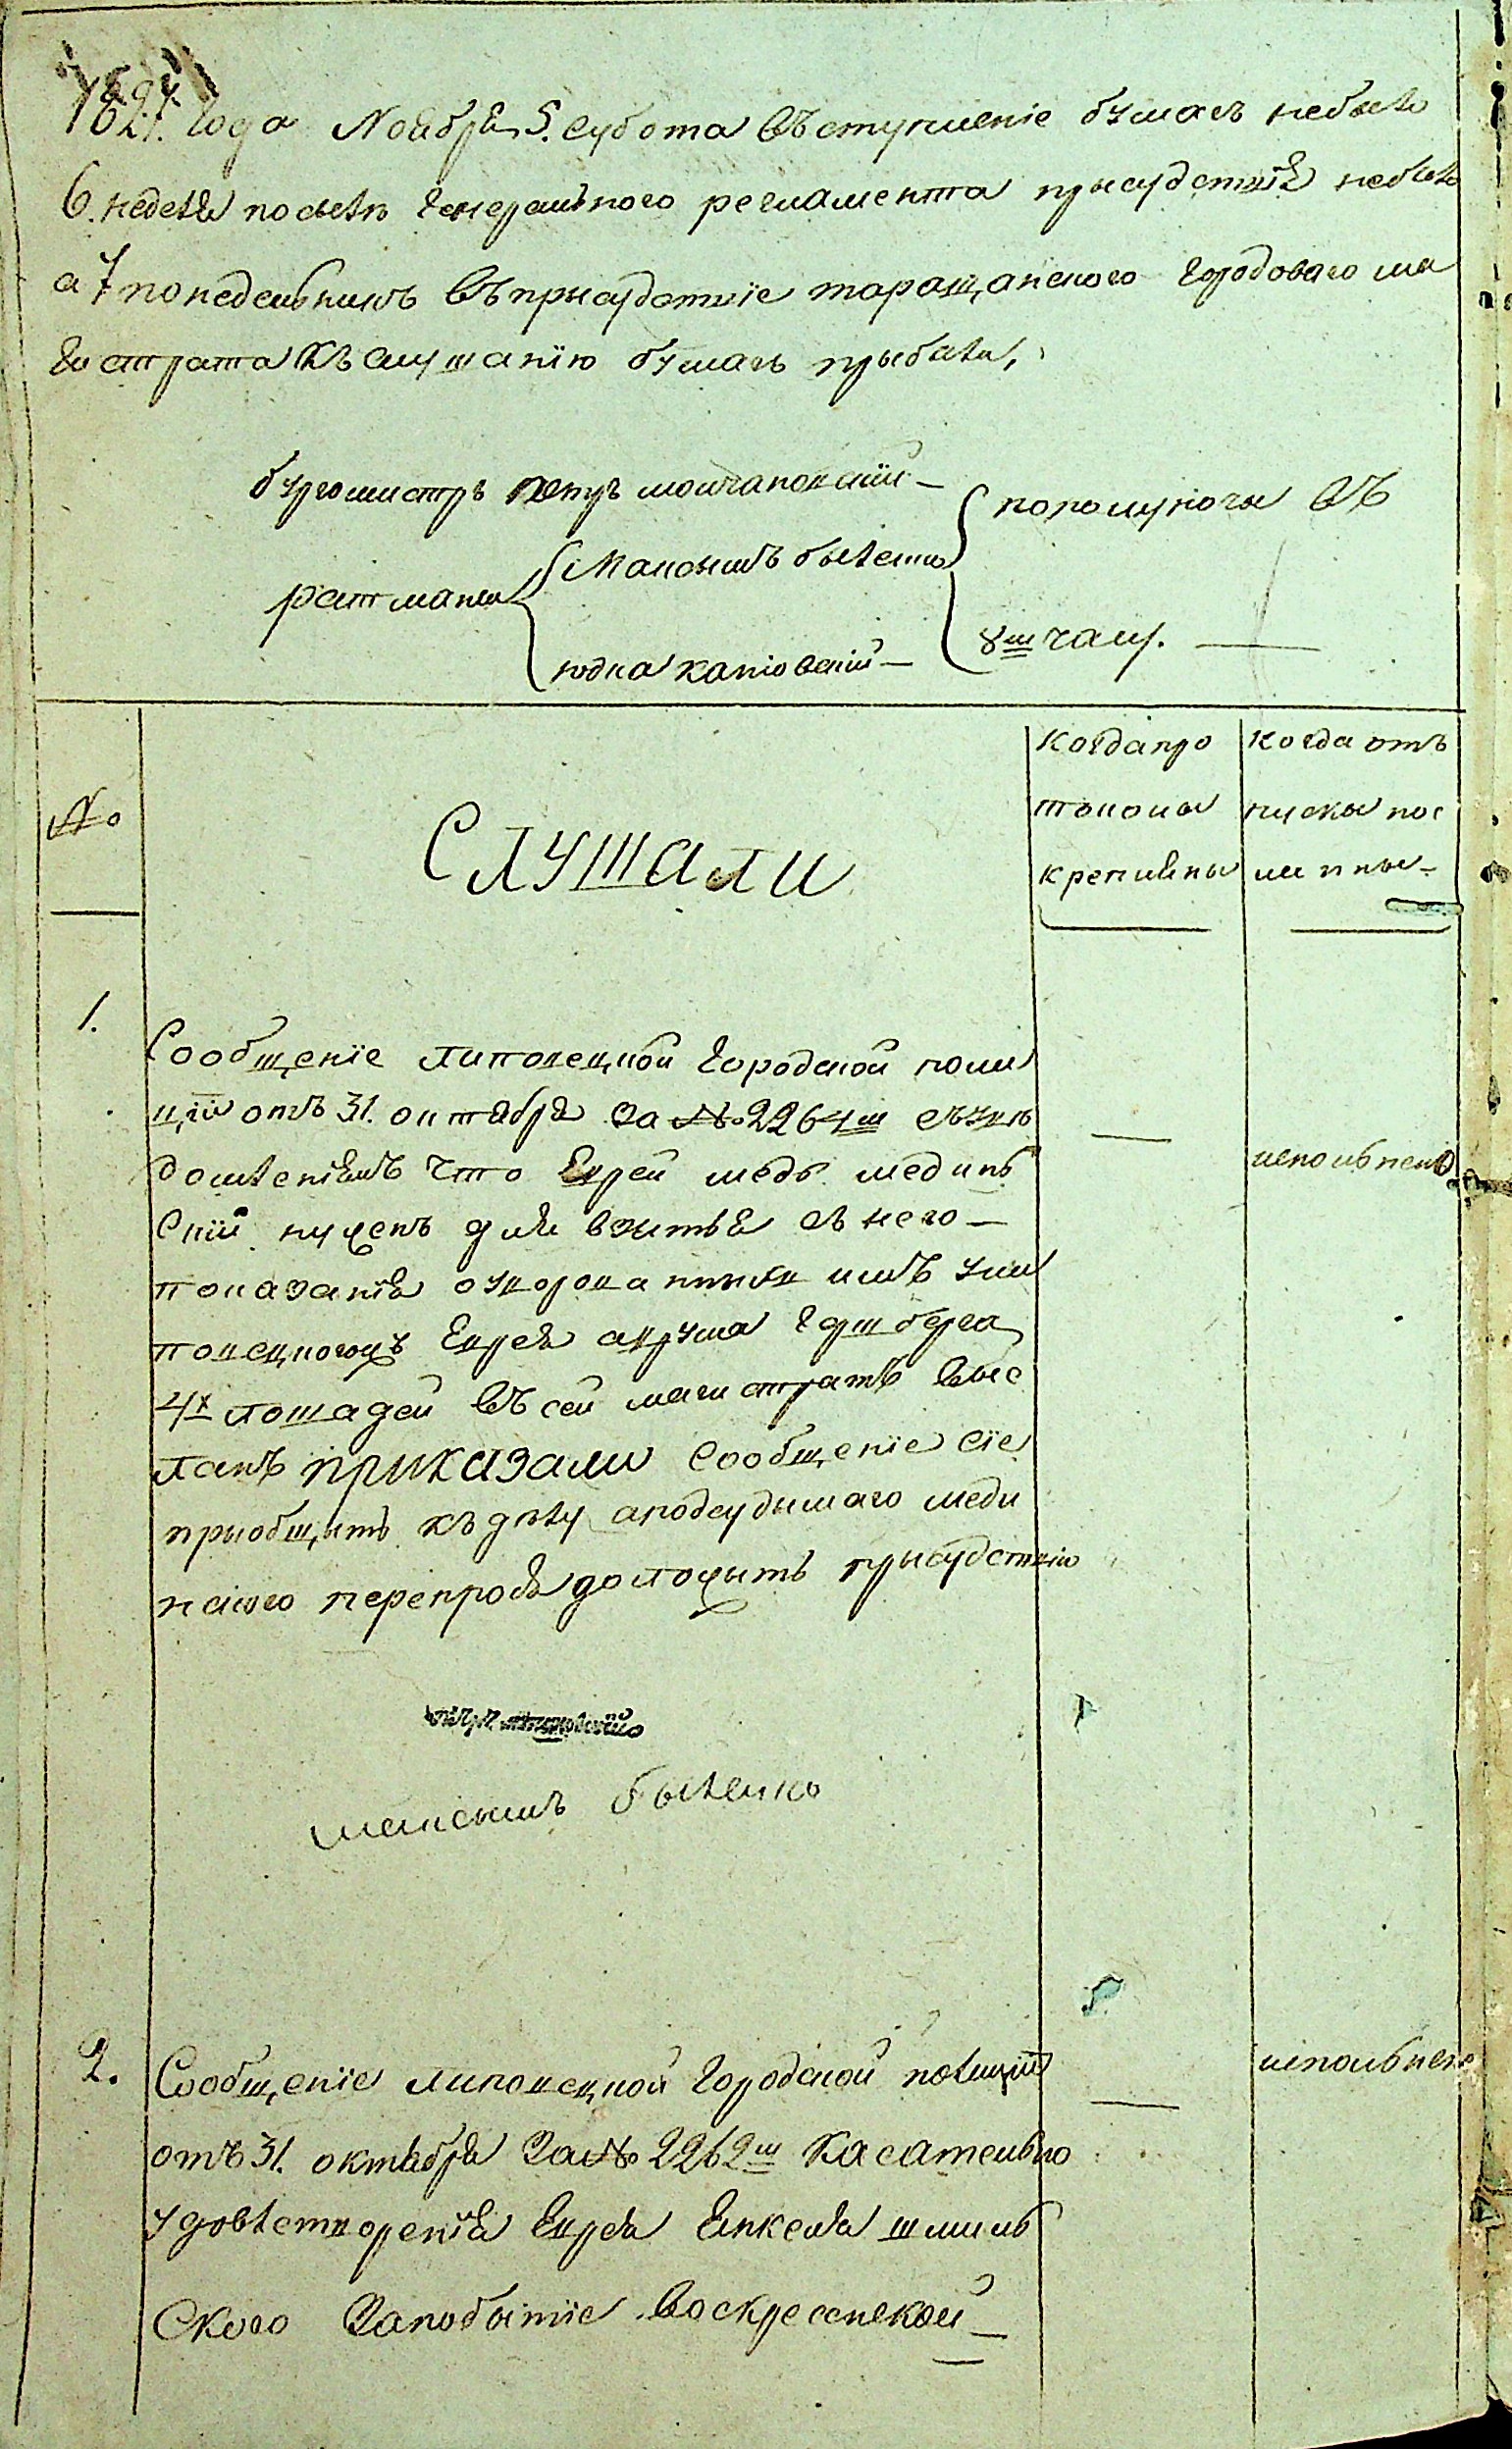 1827. года Ноября 5. субота въступленіе бумагъ небыло
6. неделя посылѣ Генерального регламента прысудствія небыло
а 7 понедельникъ въ прысудствіе таращанского городоваго ма
гистрата къ слушанію бумагъ прыбыли,
бургомистръ петръ мончаповскій
ратманы
Максымъ быленко
юдка каніовскій
пополуночы въ
8ш часу.
№
Слушали
когда про
токолы
крепилѣны
когда отъ
пускы пос
ыланы
1.
Сообщеніе липовецкой городской поли
ціи отъ 31. октября за № 2264ш съувѣ
домленіямъ что Еврей медь медынь
скій нуженъ для взятья съ него
показанія оуворованныхъ имъ ули
повецкогожъ Еврея аврума Гершберга
4х лошадей въ сей магистратъ выс
ланъ приказали сообщеніе сіе
прыобщить къ дѣлу аподсудымаго меды
нского перепровя доложыть прысудствію
исполнено
максымъ быленко
2.
Сообщеніе липовецкой городской полиціи
отъ 31. октября за № 2262ш касательно
удовлетворенія Еврея Енкеля шмиль
ского запобытіе воскресенской
исполнено